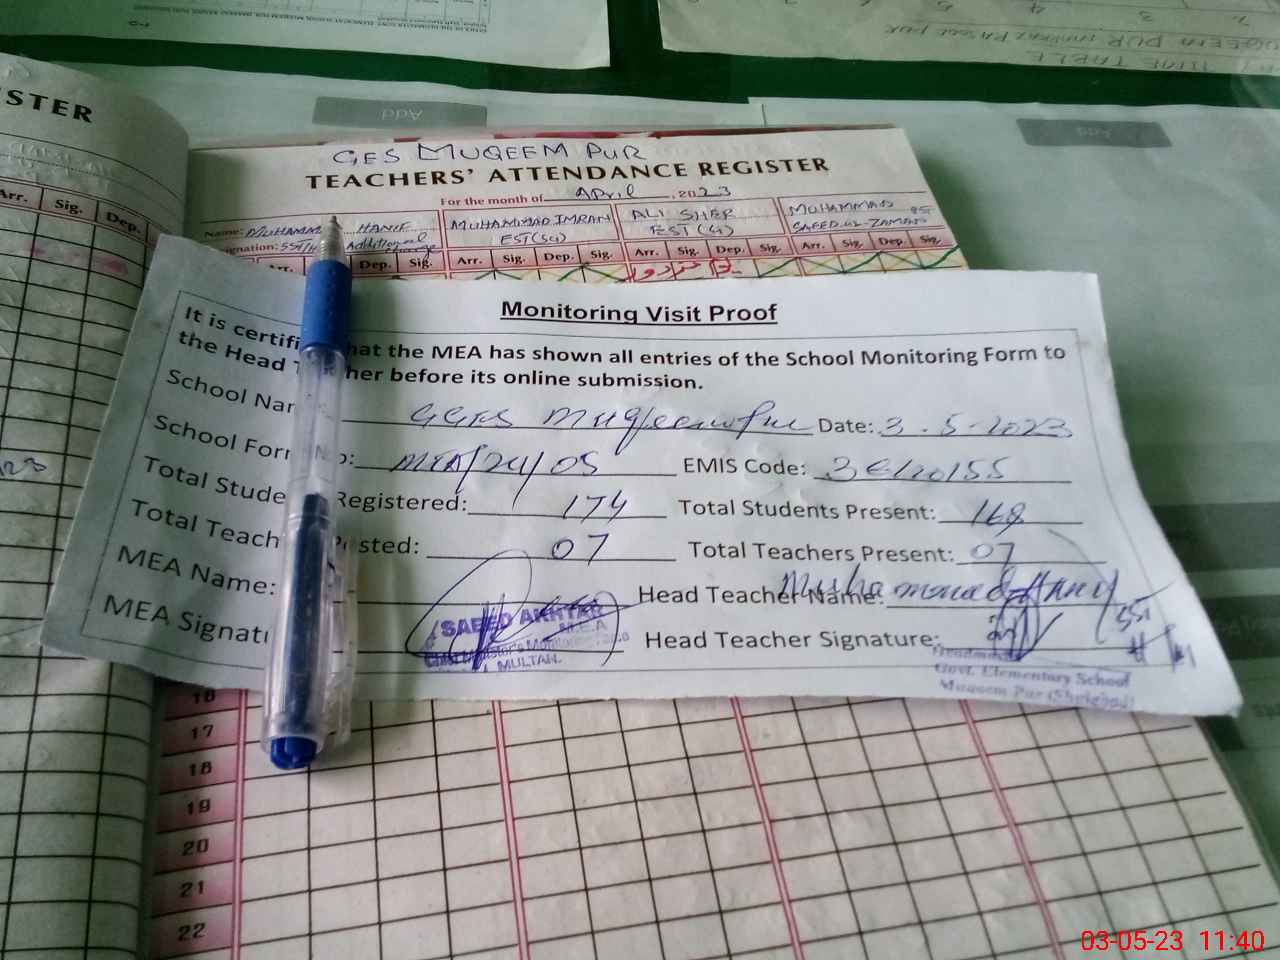 STER
Arr. Sig. Dep.
Add
Add
TIME TABLE
GES MUQEEM PUR
TEACHERS' ATTENDANCE REGISTER
For the month of April, 2023
Name: MUHAMMA HANIF MUHAMMAD IMRAN ALI SHER MUHAMMAD
ignation: SST/H Additional charge EST(SG) EST(G) SAEED-UL-ZAMAN EST
Arr. Dep. Sig. Arr. Sig. Dep. Sig. Arr. Dep. Sig. Arr. Sig. Dep. Sig.
Monitoring Visit Proof
It is certifi hat the MEA has shown all entries of the School Monitoring Form to
the Head T her before its online submission.
School Nar GGES Muqeempur Date: 3.5.2023
School Forr o: MEA/24/05 EMIS Code:
Total Stude Registered: 174 Total Students Present: 168
Total Teach osted: 07 Total Teachers Present: 07
MEA Name: Head Teacher Name: Muhammad Hanif
SAEED AKHTAR
M.E.A
MEA Signatu Head Teacher Signature: SST
MULTAN.
Govt. Elementary School
Muqeem Pur (Shujabad)
16
17
18
19
20
21
22
03-05-23 11:40